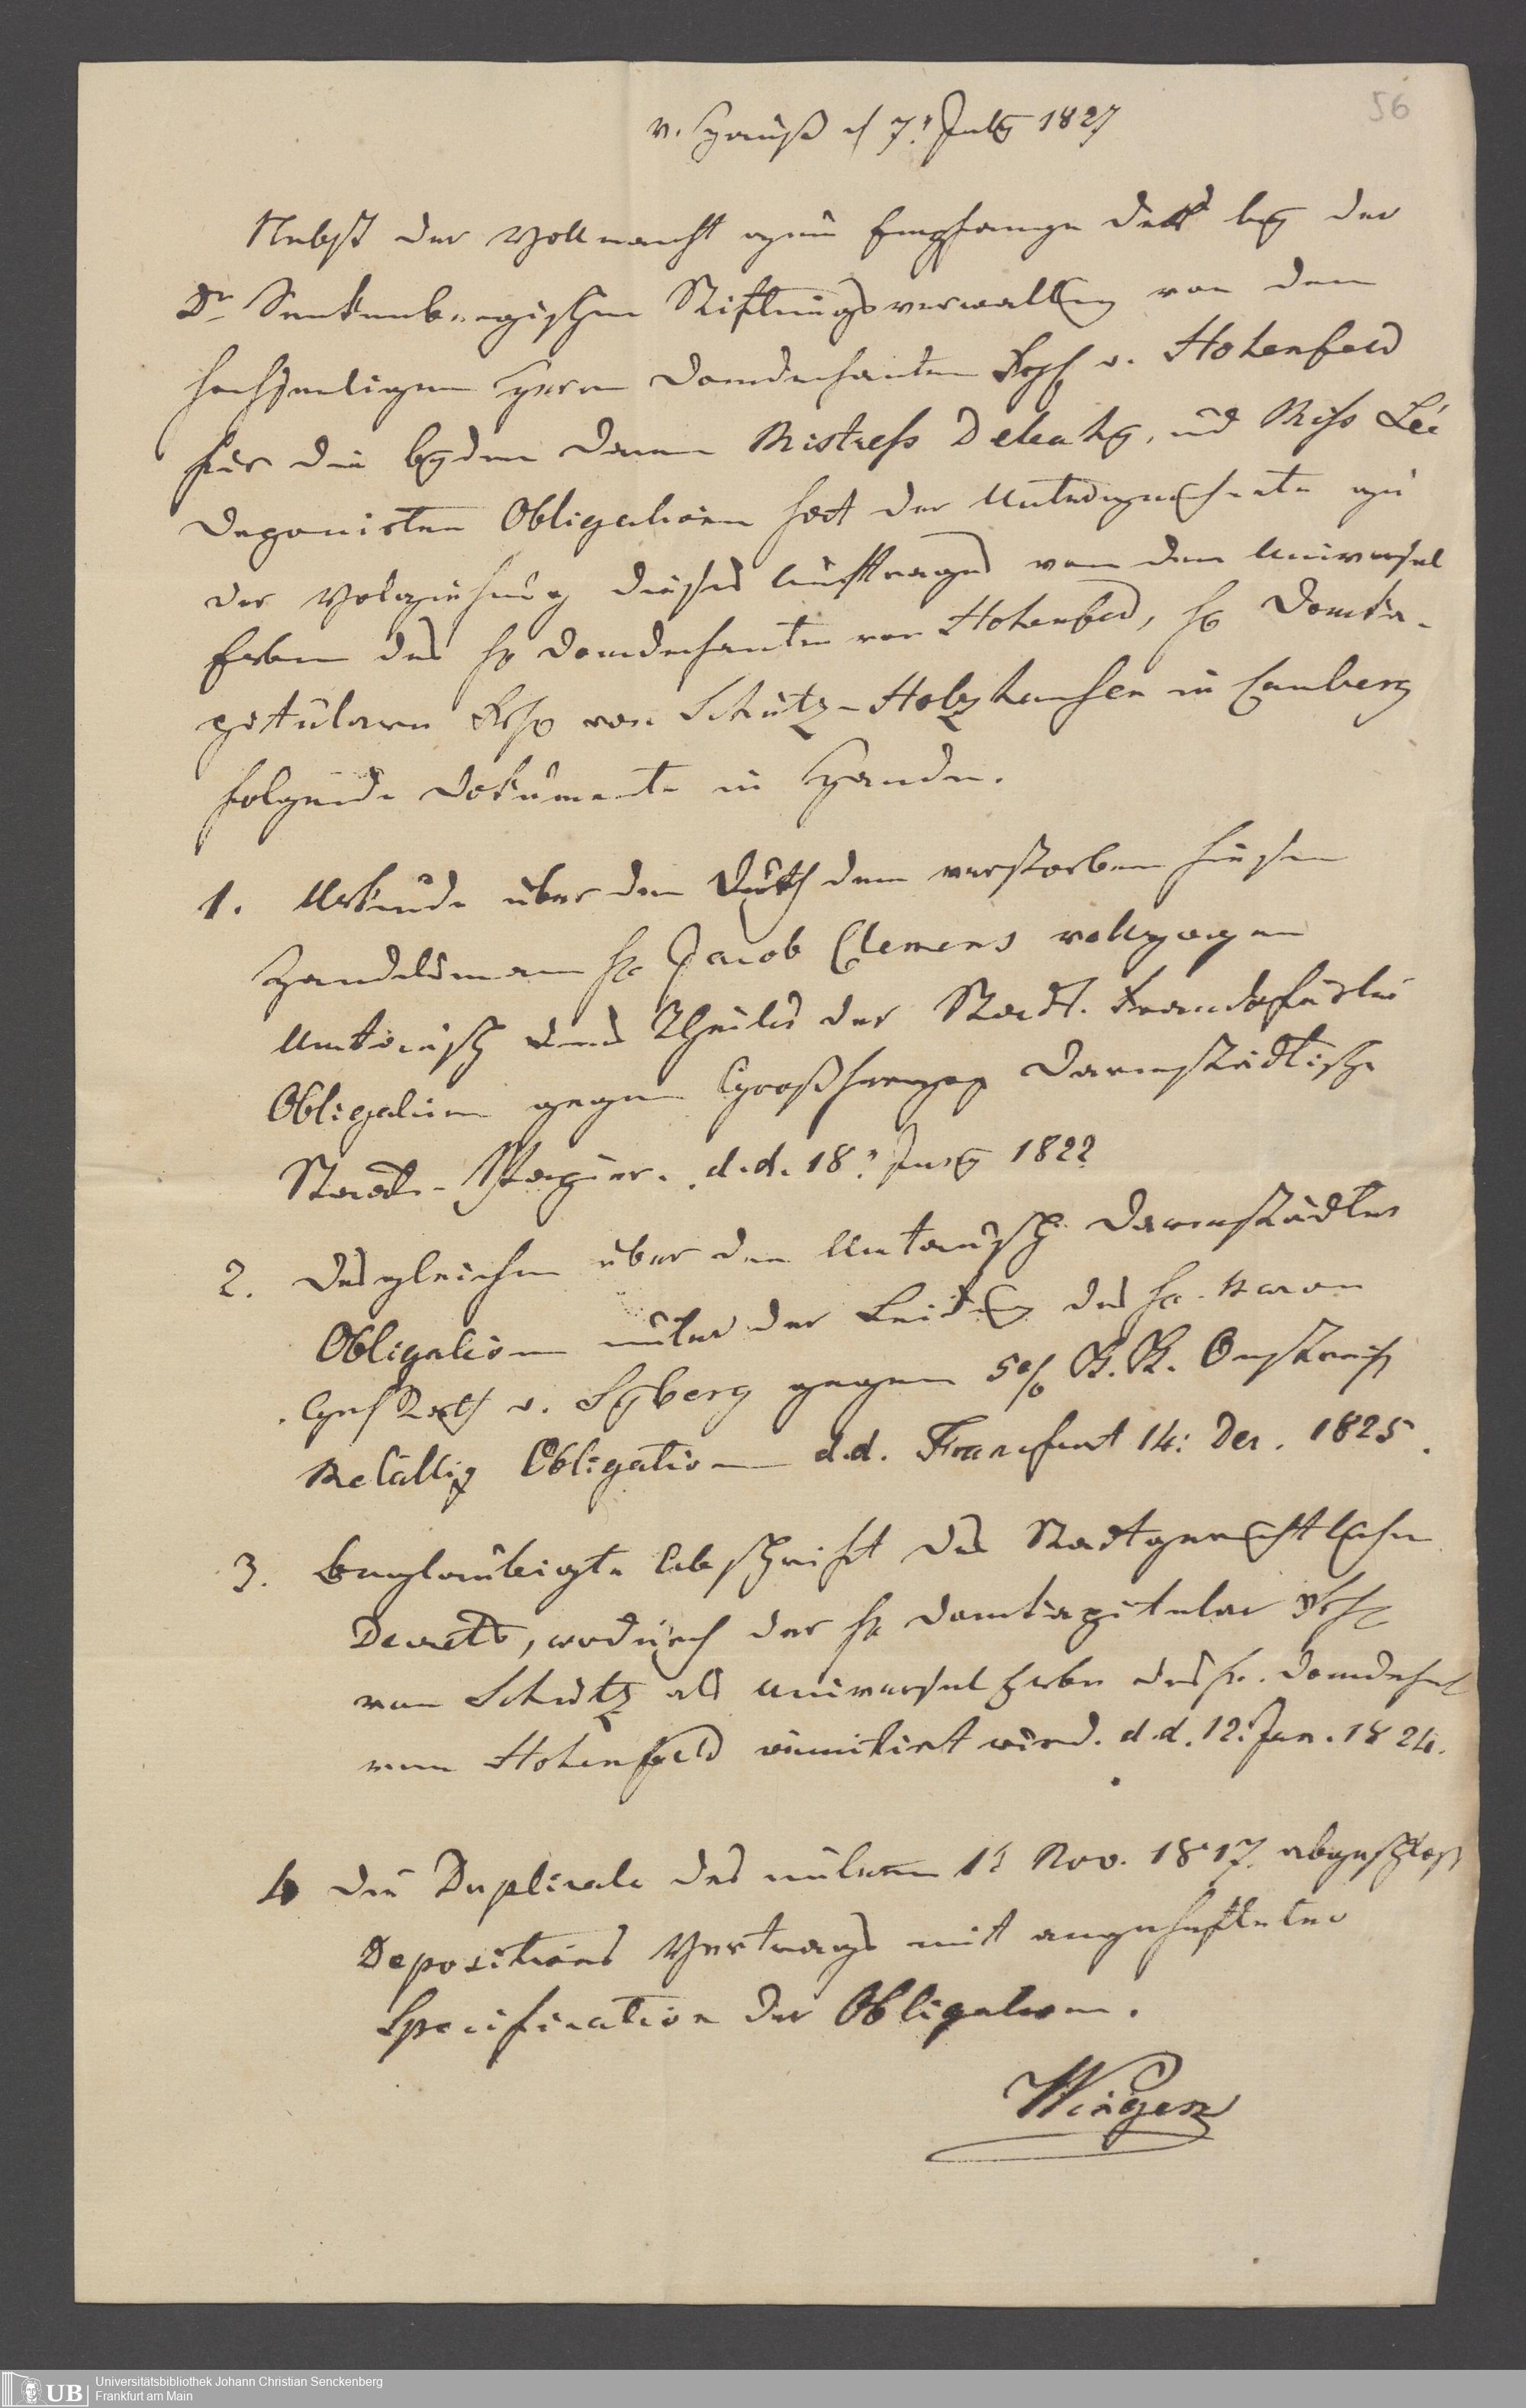 56
v. Hauß d 7t July 1827
Nebst der Vollmacht zum Empfange der bey der
Dr Senkenbergischen Stiftungsverwaltung von dem
hochseeligen Herrn Domdechanten Frhh v. Hohenfeld
für die beyden Damen Mistress Deleahy, und Miss Lée
deponirten Obligationen hat der Unterzeichnete zu
der Vollziehung dieses Auftrages von dem Universal
Erben des H Domdechanten von Hohenfeld, H Domka-
pitularn Frhr von Schütz-Holzhausen in Camberg
folgende Dokumente in Handen.
1. Urkunde über den durch den verstorbenen hiesigen
Handelsmann Hr Jacob Clemens vollzogenen
Umtausch eines Theiles der Stadt. Frankfurter
Obligationen gegen Großherzog Darmstädtische
Staats-Papiere. d.d. 18t Juny 1822
2. Desgleichen über den Umtausch Darmstädter
Obligationen unter der Leitung des Hr. Baron
Geh Rath v. Syberg gegen 5% K. K. Oestreich
Metallig Obligationen d.d. Francfurt 14: Der. 1825.
3. Beglaubigte Abschrift des Stadtgerichtlichen
Decrets, wodurch der Hr Domkapitular Frhr
von Schütz als Universal Erbe des Hr. Domdechant
von Hohenfeld immitirt wird. d.d. 12t Jan. 1824.
4 Die Duplicate des unterm 1t Nov. 1817. abgeschloss
Depositions Vertrags mit angehefteter
Specification der Obligationen.
Wingen
UB
Universitätsbibliothek Johann Christian Senckenberg
Frankfurt am Main